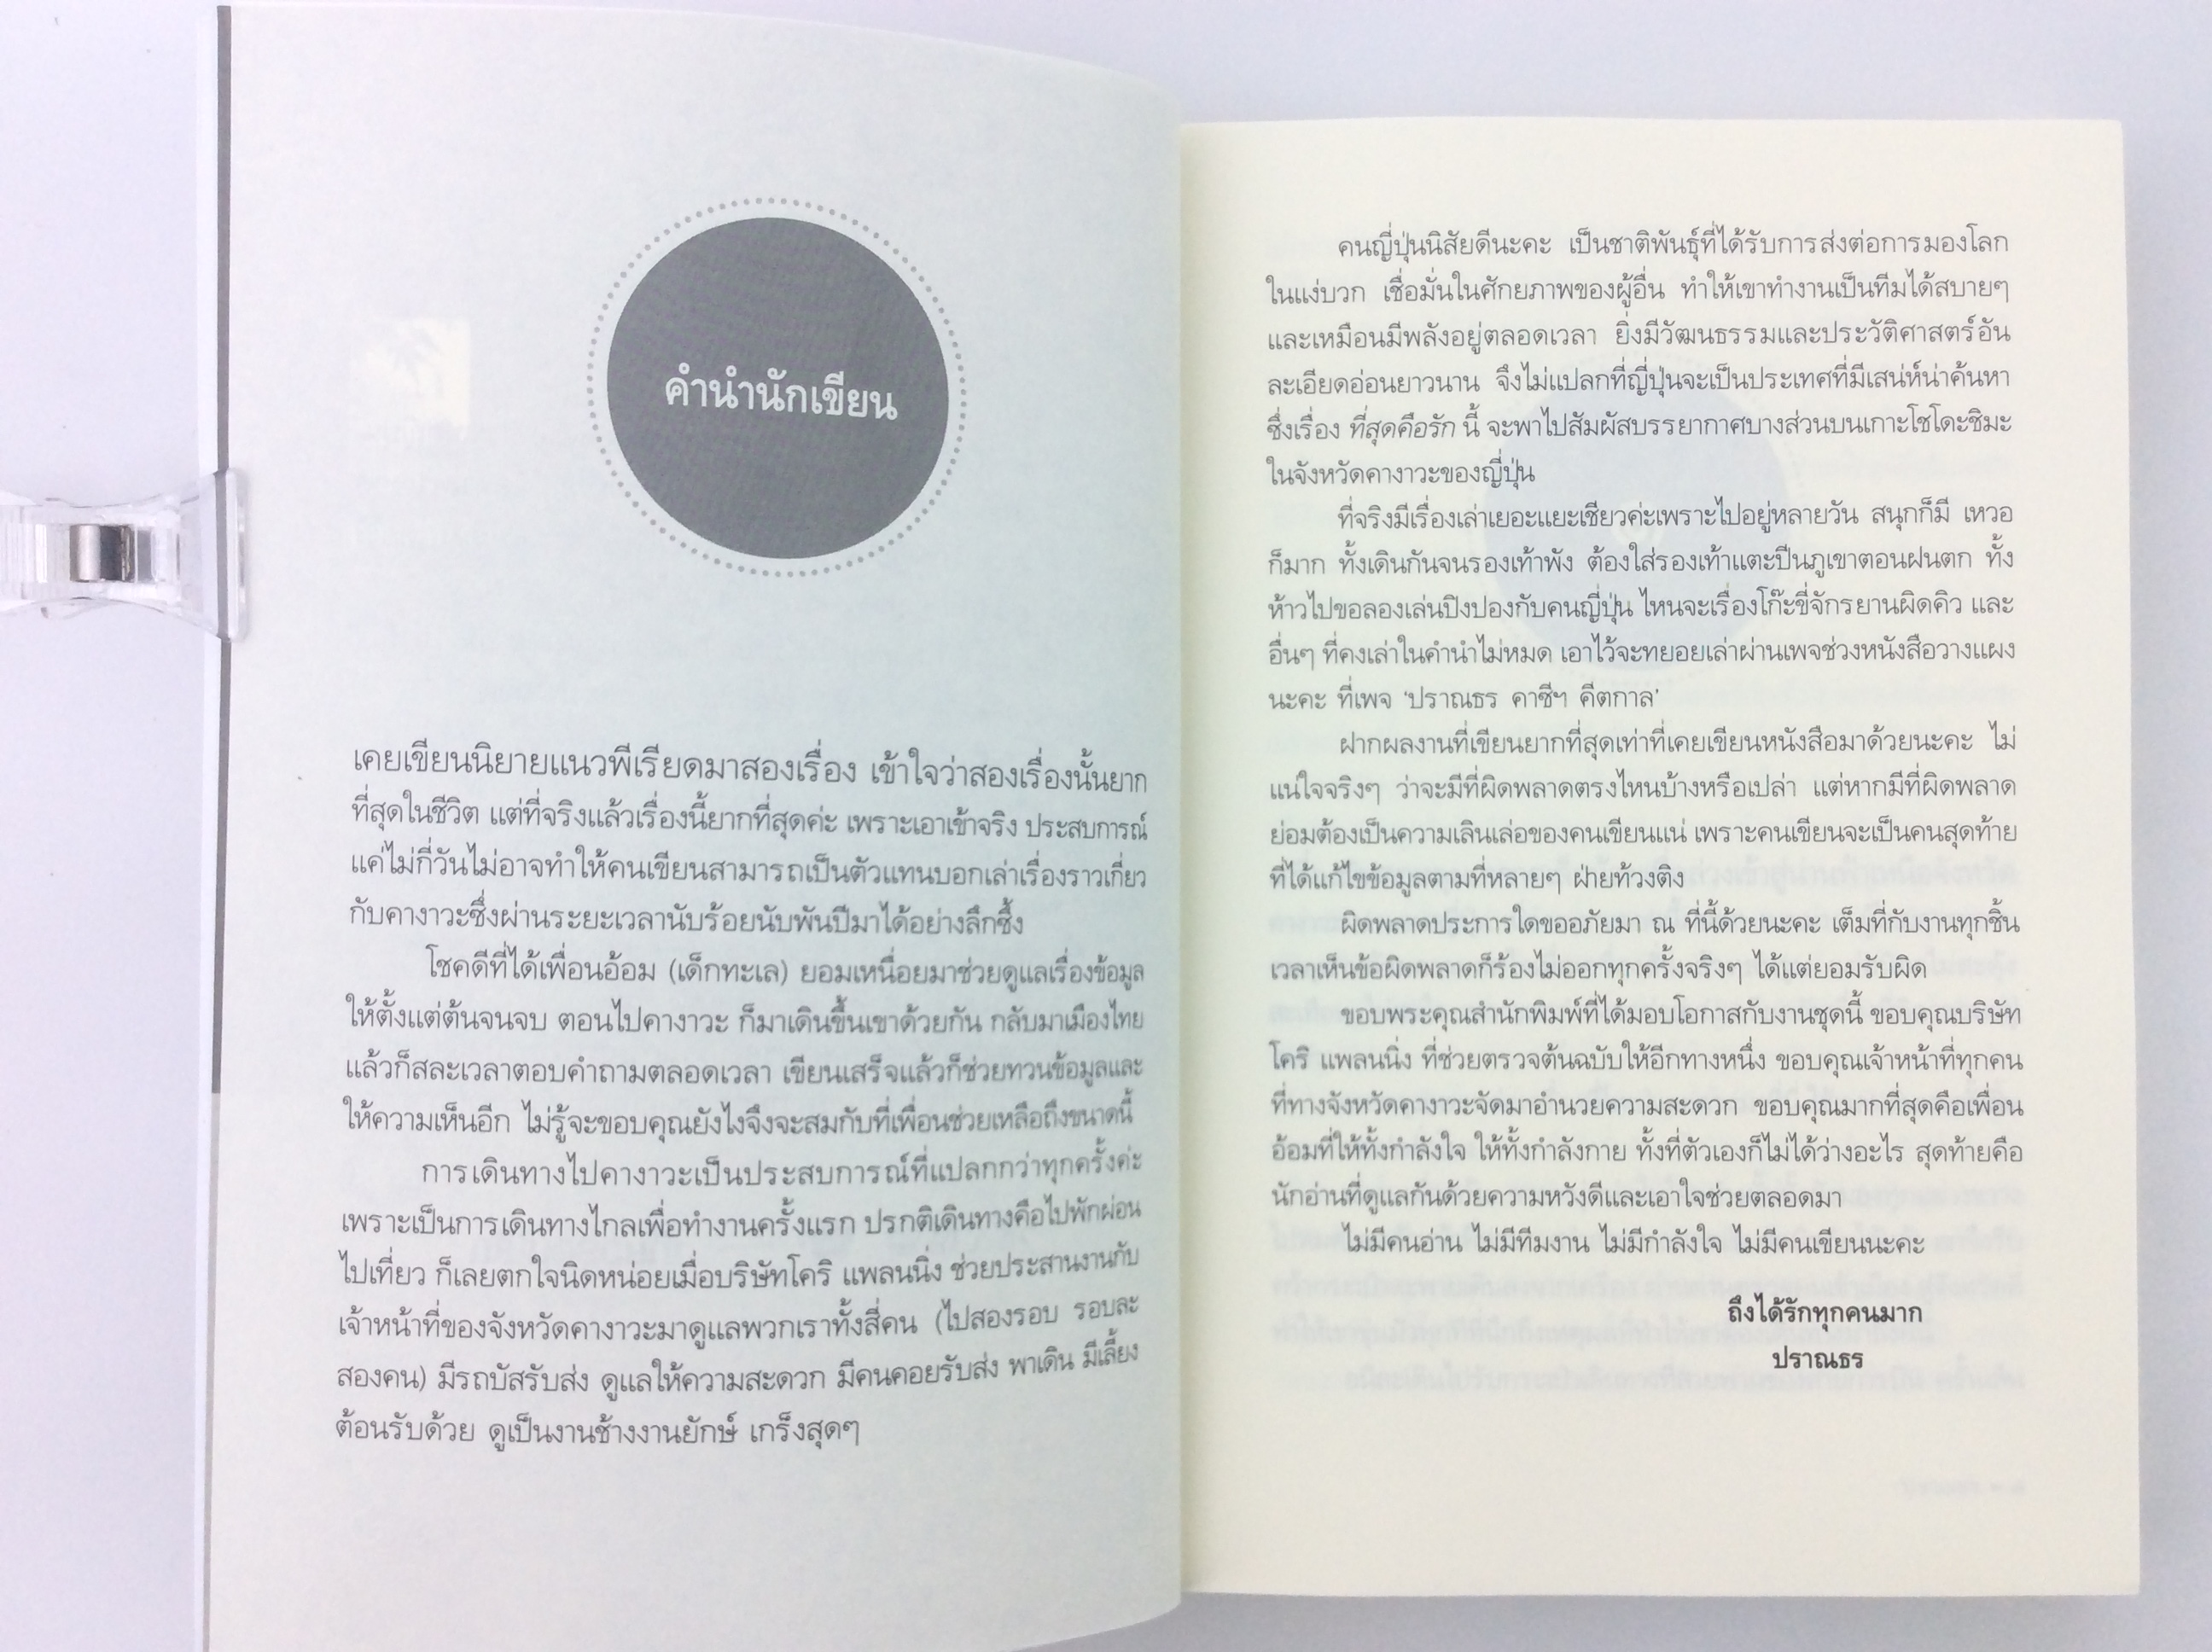 คำนำนักเขียน
เคยเขียนนิยายแนวพีเรียดมาสองเรื่อง เข้าใจว่าสองเรื่องนั้นยาก
ที่สุดในชีวิต แต่ที่จริงแล้วเรื่องนี้ยากที่สุดค่ะ เพราะเอาเข้าจริง ประสบการณ์
แค่ไม่กี่วันไม่อาจทำให้คนเขียนสามารถเป็นตัวแทนบอกเล่าเรื่องราวเกี่ยว
กับคางาวะซึ่งผ่านระยะเวลานับร้อยนับพันปีมาได้อย่างลึกซึ้ง
โชคดีที่ได้เพื่อนอ้อม (เด็กทะเล) ยอมเหนื่อยมาช่วยดูแลเรื่องข้อมูล
ให้ตั้งแต่ต้นจนจบ ตอนไปคางาวะ ก็มาเดินขึ้นเขาด้วยกัน กลับมาเมืองไทย
แล้วก็สละเวลาตอบคำถามตลอดเวลา เขียนเสร็จแล้วก็ช่วยทวนข้อมูลและ
ให้ความเห็นอีก ไม่รู้จะขอบคุณยังไงจึงจะสมกับที่เพื่อนช่วยเหลือถึงขนาดนี้
การเดินทางไปคางาวะเป็นประสบการณ์ที่แปลกกว่าทุกครั้งค่ะ
เพราะเป็นการเดินทางไกลเพื่อทำงานครั้งแรก ปรกติเดินทางคือไปพักผ่อน
ไปเที่ยว ก็เลยตกใจนิดหน่อยเมื่อบริษัทโคริ แพลนนิ่ง ช่วยประสานงานกับ
เจ้าหน้าที่ของจังหวัดคางาวะมาดูแลพวกเราทั้งสี่คน (ไปสองรอบ รอบละ
สองคน) มีรถบัสรับส่ง ดูแลให้ความสะดวก มีคนคอยรับส่ง พาเดิน มีเลี้ยง
ต้อนรับด้วย ดูเป็นงานช้างงานยักษ์ เกร็งสุดๆ
คนญี่ปุ่นนิสัยดีนะคะ เป็นชาติพันธุ์ที่ได้รับการส่งต่อการมองโลก
ในแง่บวก เชื่อมั่นในศักยภาพของผู้อื่น ทำให้เขาทำงานเป็นทีมได้สบายๆ
และเหมือนมีพลังอยู่ตลอดเวลา ยิ่งมีวัฒนธรรมและประวัติศาสตร์อัน
ละเอียดอ่อนยาวนาน จึงไม่แปลกที่ญี่ปุ่นจะเป็นประเทศที่มีเสน่ห์น่าค้นหา
ซึ่งเรื่อง ที่สุดคือรัก นี้ จะพาไปสัมผัสบรรยากาศบางส่วนบนเกาะโชโดะชิมะ
ในจังหวัดคางาวะของญี่ปุ่น
ที่จริงมีเรื่องเล่าเยอะแยะเชียวค่ะเพราะไปอยู่หลายวัน สนุกก็มี เหวอ
ก็มาก ทั้งเดินกันจนรองเท้าพัง ต้องใส่รองเท้าแตะปีนภูเขาตอนฝนตก ทั้ง
ห้าวไปขอลองเล่นปิงปองกับคนญี่ปุ่น ไหนจะเรื่องโก๊ะขี่จักรยานผิดคิว และ
อื่นๆ ที่คงเล่าในคำนำไม่หมด เอาไว้จะทยอยเล่าผ่านเพจช่วงหนังสือวางแผง
นะคะ ที่เพจ ‘ปราณธร คาซีฯ คีตกาล’
ฝากผลงานที่เขียนยากที่สุดเท่าที่เคยเขียนหนังสือมาด้วยนะคะ ไม่
แน่ใจจริงๆ ว่าจะมีที่ผิดพลาดตรงไหนบ้างหรือเปล่า แต่หากมีที่ผิดพลาด
ย่อมต้องเป็นความเลินเล่อของคนเขียนแน่ เพราะคนเขียนจะเป็นคนสุดท้าย
ที่ได้แก้ไขข้อมูลตามที่หลายๆ ฝ่ายท้วงติง
ผิดพลาดประการใดขออภัยมา ณ ที่นี้ด้วยนะคะ เต็มที่กับงานทุกชิ้น
เวลาเห็นข้อผิดพลาดก็ร้องไม่ออกทุกครั้งจริงๆ ได้แต่ยอมรับผิด
ขอบพระคุณสำนักพิมพ์ที่ได้มอบโอกาสกับงานชุดนี้ ขอบคุณบริษัท
โคริ แพลนนิ่ง ที่ช่วยตรวจต้นฉบับให้อีกทางหนึ่ง ขอบคุณเจ้าหน้าที่ทุกคน
ที่ทางจังหวัดคางาวะจัดมาอำนวยความสะดวก ขอบคุณมากที่สุดคือเพื่อน
อ้อมที่ให้ทั้งกำลังใจ ให้ทั้งกำลังกาย ทั้งที่ตัวเองก็ไม่ได้ว่างอะไร สุดท้ายคือ
นักอ่านที่ดูแลกันด้วยความหวังดีและเอาใจช่วยตลอดมา
ไม่มีคนอ่าน ไม่มีทีมงาน ไม่มีกำลังใจ ไม่มีคนเขียนนะคะ
ถึงได้รักทุกคนมาก
ปราณธร